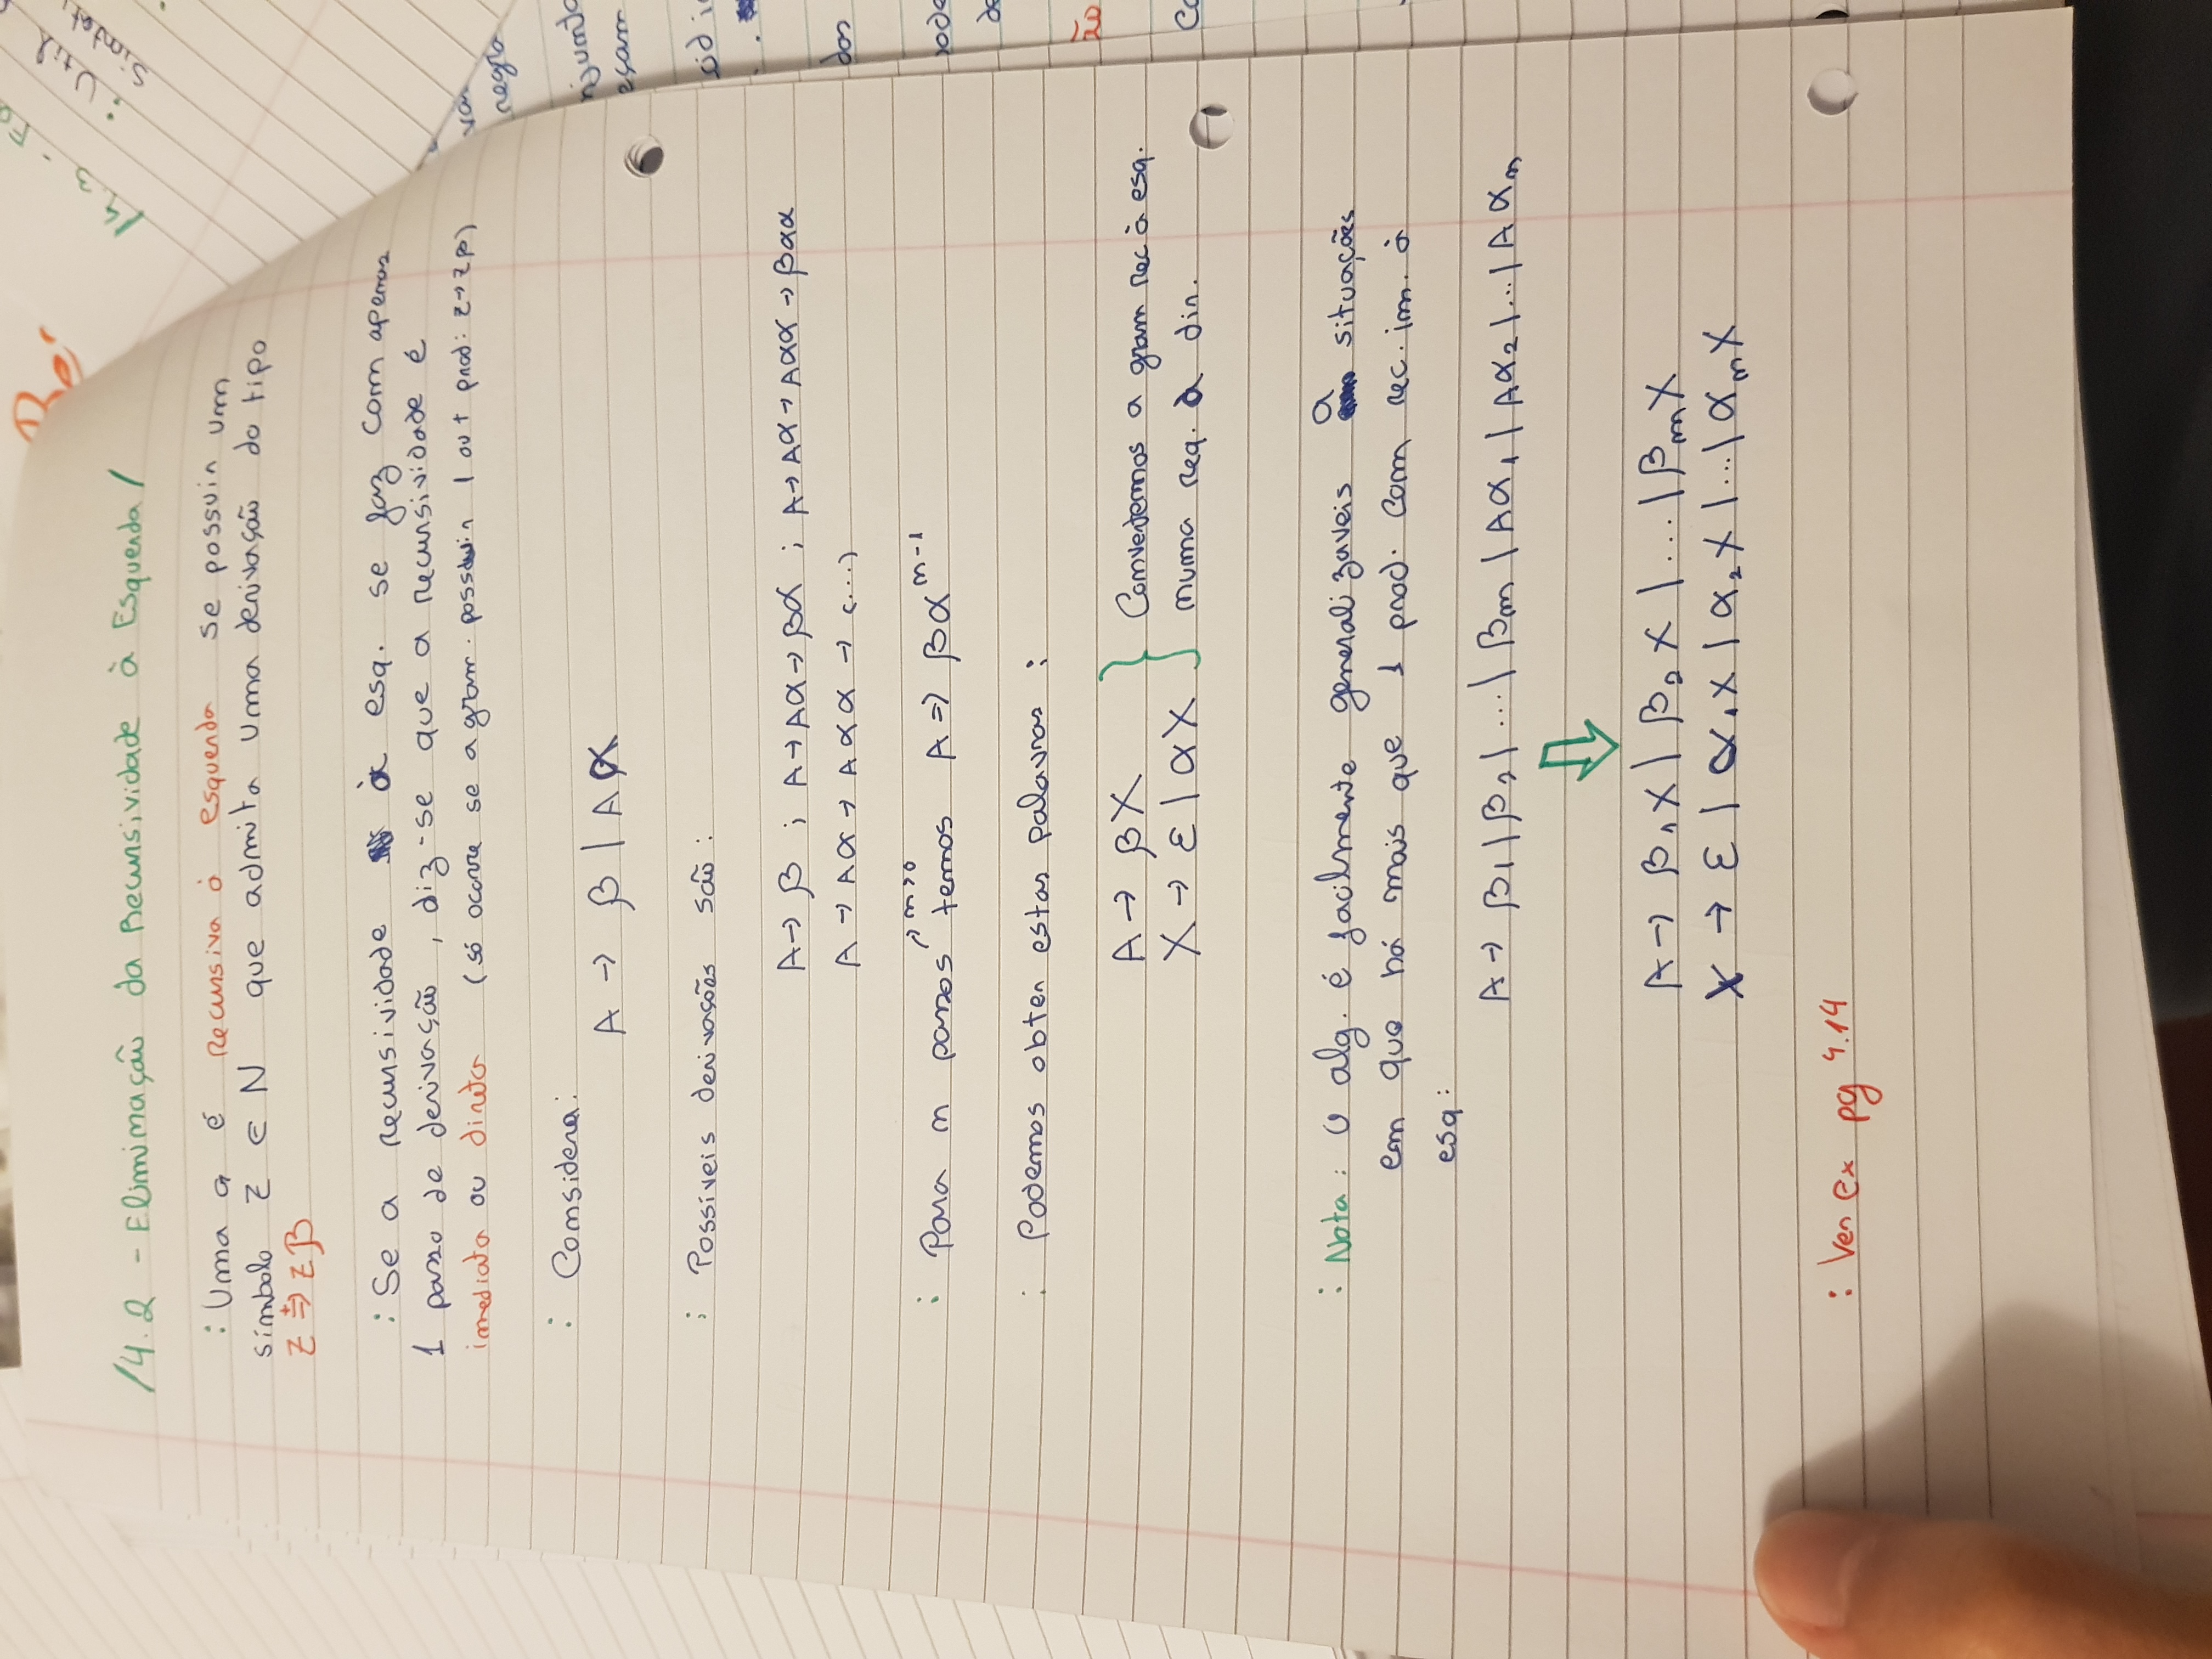 /4.2 - Eliminação da Recursividade à Esquerda/
: Uma G é recursiva à esquerda se possuir um
símbolo Z ∈ N que admita uma derivação do tipo
Z ⇒⁺ Zβ
: Se a recursividade à esq. se faz com apenas
1 passo de derivação, diz-se que a recursividade é
imediata ou direta (só ocorre se a gram. possuir 1 ou + prod: Z → Zβ)
: Considera:
A → β | Aα
: Possíveis derivações são:
A → β ; A → Aα → βα ; A → Aα → Aαα → βαα
A → Aα → Aαα → (...)
: Para n passos ↗ n>0 temos A ⇒ βα^{n-1}
: Podemos obter estas palavras :
A → βX
X → ε | αX
} Convertemos a gram rec à esq.
numa req. à dir.
: Nota: O alg. é facilmente generalizaveis a situações
em que há mais que 1 prod. com rec. im. à
esq:
A → β₁ | β₂ | ... | βm | Aα₁ | Aα₂ | ... | Aαn
⇩
A → β₁X | β₂X | ... | βmX
X → ε | α₁X | α₂X | ... | αnX
: Ver Ex pg 4.14
14.3 -
: Util
Sintat
regra
njunto
eçam
dos